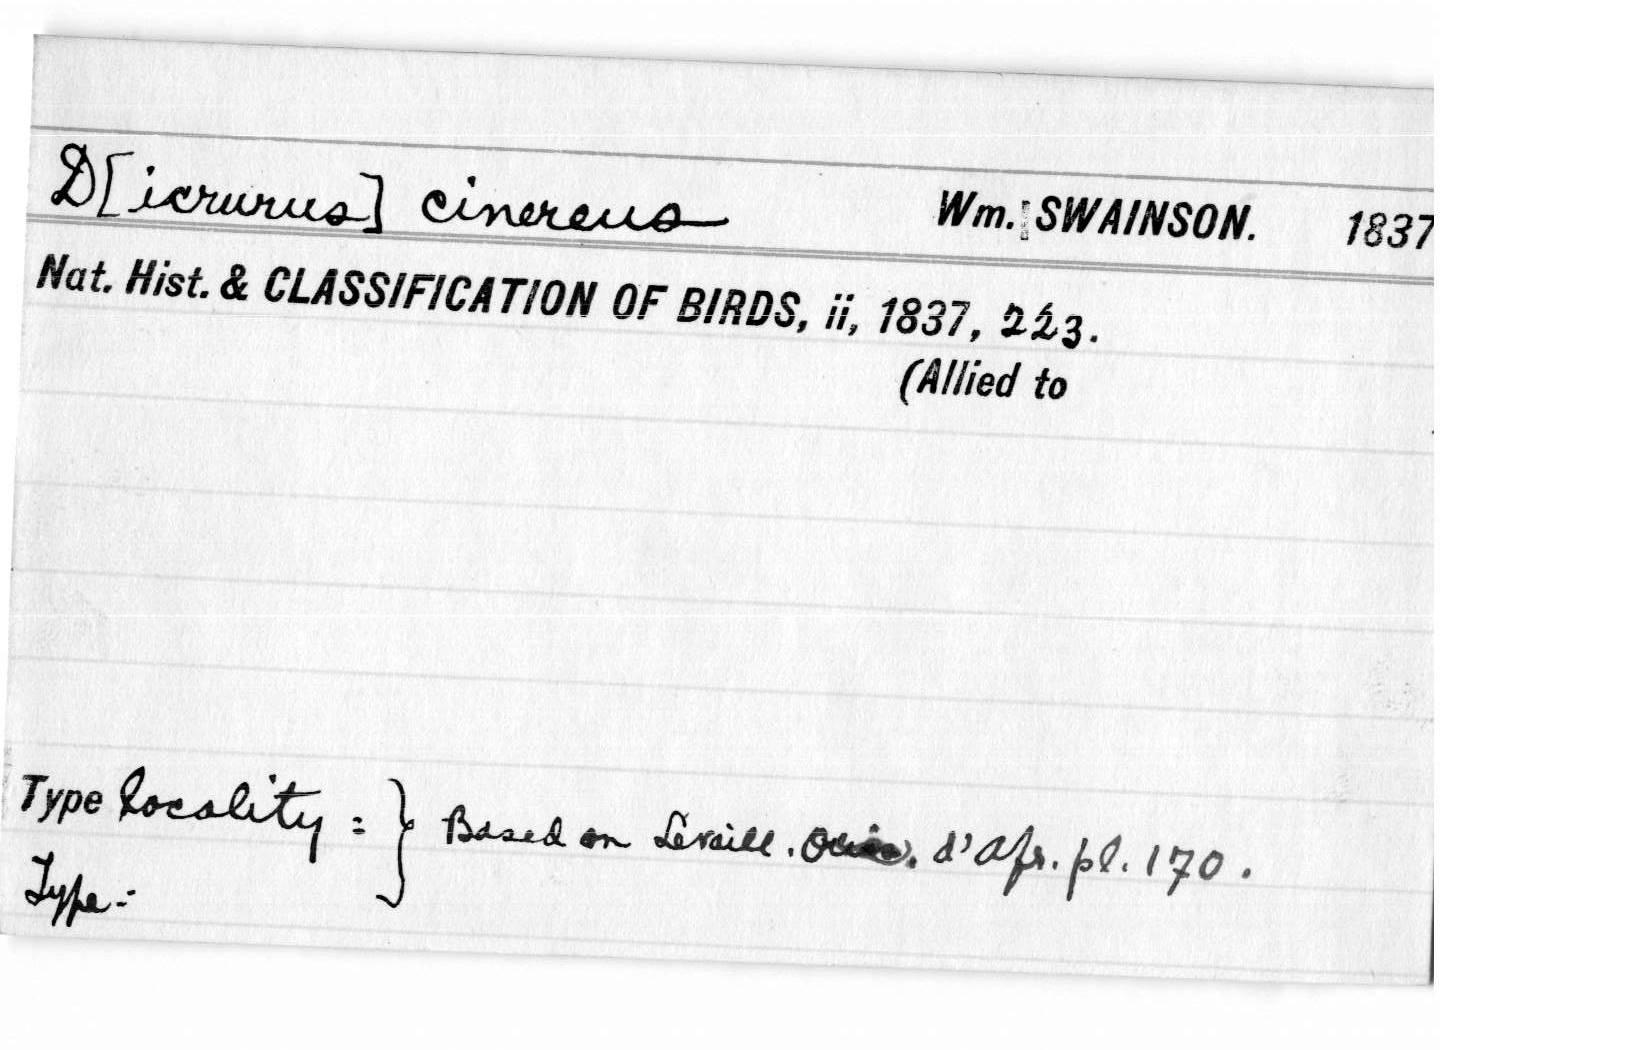 D[icrurus] cinereus Wm. SWAINSON. 1837
Nat. Hist. & CLASSIFICATION OF BIRDS, ii, 1837, 223.
(Allied to
Type locality = } Based on Levaill. d'Afr. pl. 170.
Type:-